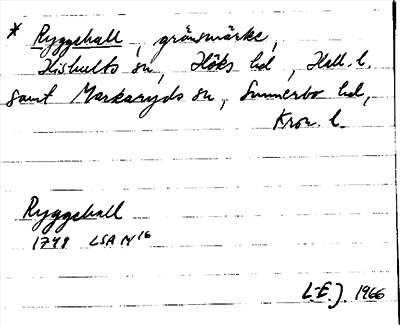 * Ryggehall, gränsmärke,
Hishults sn, Höks hd, Hall. l.
samt Markaryds sn, Sunnerbo hd,
Kron. l.
Ryggehall
1748 LSA M16
L-E. J. 1966